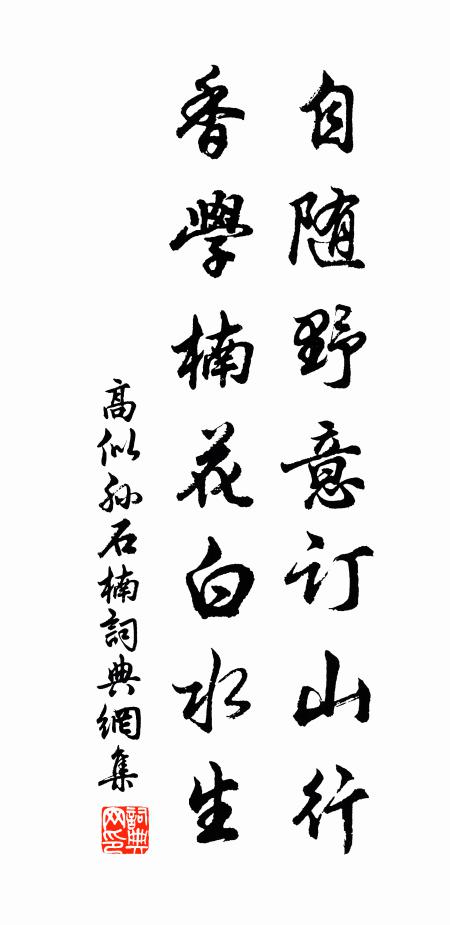 自随野意订山行
香學楠花白水生
高似孙石楠詞典網集
詞典
网印